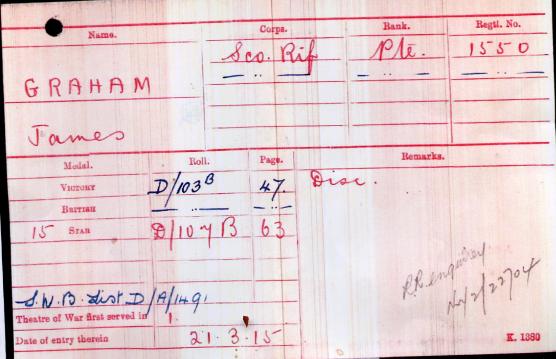 Name. Corps. Rank. Regtl. No.
GRAHAM Sco. Rif Pte. 1550
James
Medal. Roll. Page. Remarks.
VICTORY D/103B 47. Disc.
BRITISH
15 STAR D/107B 63
S.W.B. List D/A/149,
Theatre of War first served in 1.
Date of entry therein 21.3.15
R.R. enquiry
2/22704
K. 1380